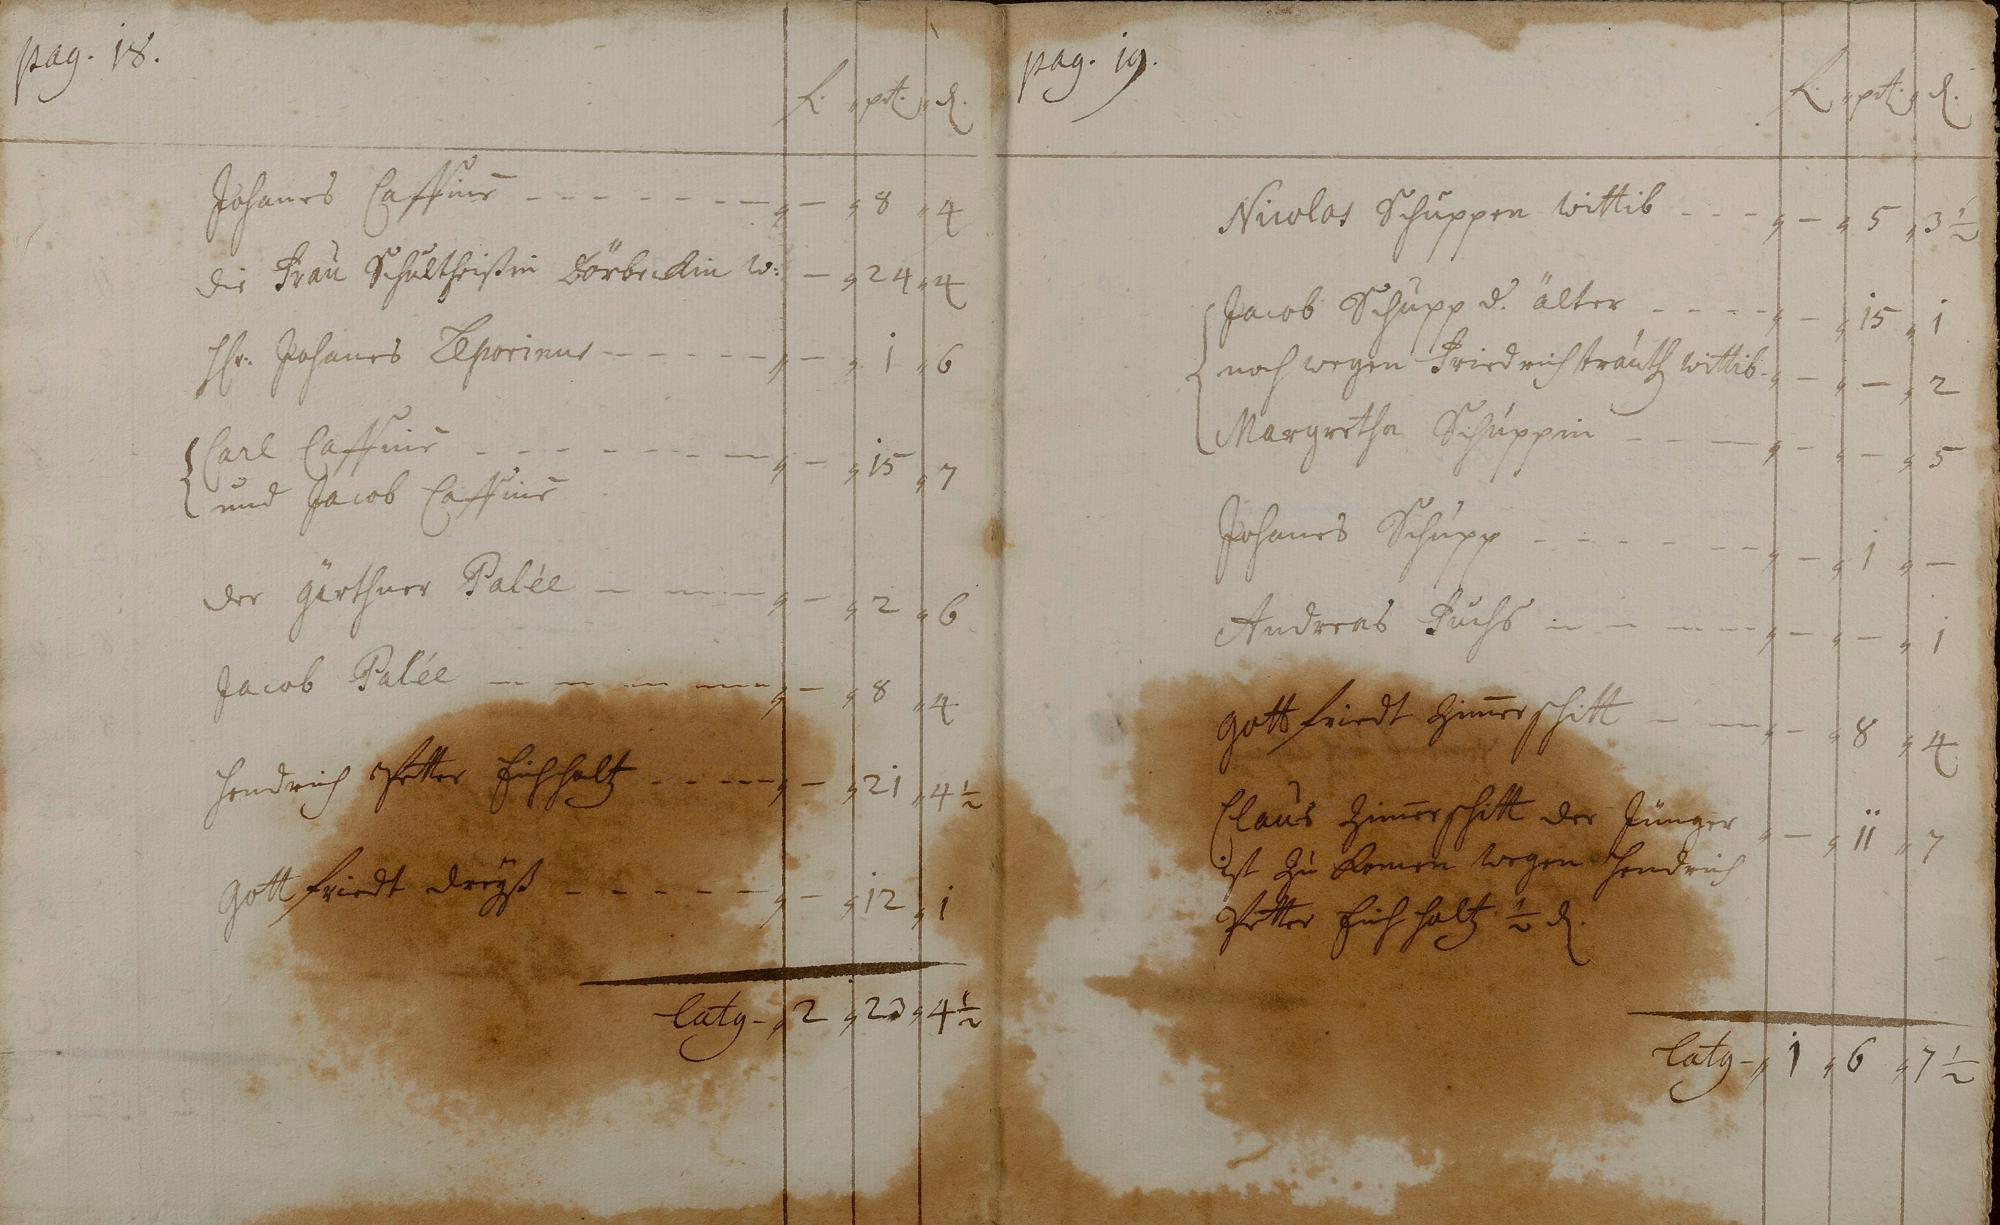 pag. 18.
f. „ pet. „ d.
Johanes Cassine - - - - - - - - „ — „ 8 „ 4
die Frau Schultheißin Dörbeckin W: — „ 24 „ 4
Hr. Johanes Leporinus - - - - - - „ — „ 1 „ 6
Carl Cassine - - - - - - - - „ — „ 15 „ 7
und Jacob Cassine
der gärthner Palée - - - - „ — „ 2 „ 6
Jacob Palée - - - - - - „ — „ 8 „ 4
Hendrich Petter Eichholtz - - - - - „ — „ 21 „ 4 ½
Gottfriedt Dreyß - - - - - - „ — „ 12 „ 1
Latg - „ 2 „ 23 „ 4 ½
pag. 19.
f. „ pet. „ d.
Nicolas Schuppen wittib - - - „ — „ 5 „ 3 ½
Jacob Schupp d. älter - - - - - „ — „ 15 „ 1
noch wegen Friedrich strauth wittib - „ — „ — „ 2
Margretha Schuppin - - — „ — „ — „ 5
Johanes Schupp - - - - - - - „ — „ 1 „ —
Andreas Fuchs - - - - - „ — „ — „ 1
Gottfriedt Zim̅erschitt - - - „ — „ 8 „ 4
Claus Zim̅erschitt der Jünger „ — „ 11 „ 7
ist zu komen wegen Hendrich
Petter Eichholtz ½ d.
Latg - „ 1 „ 6 „ 7 ½